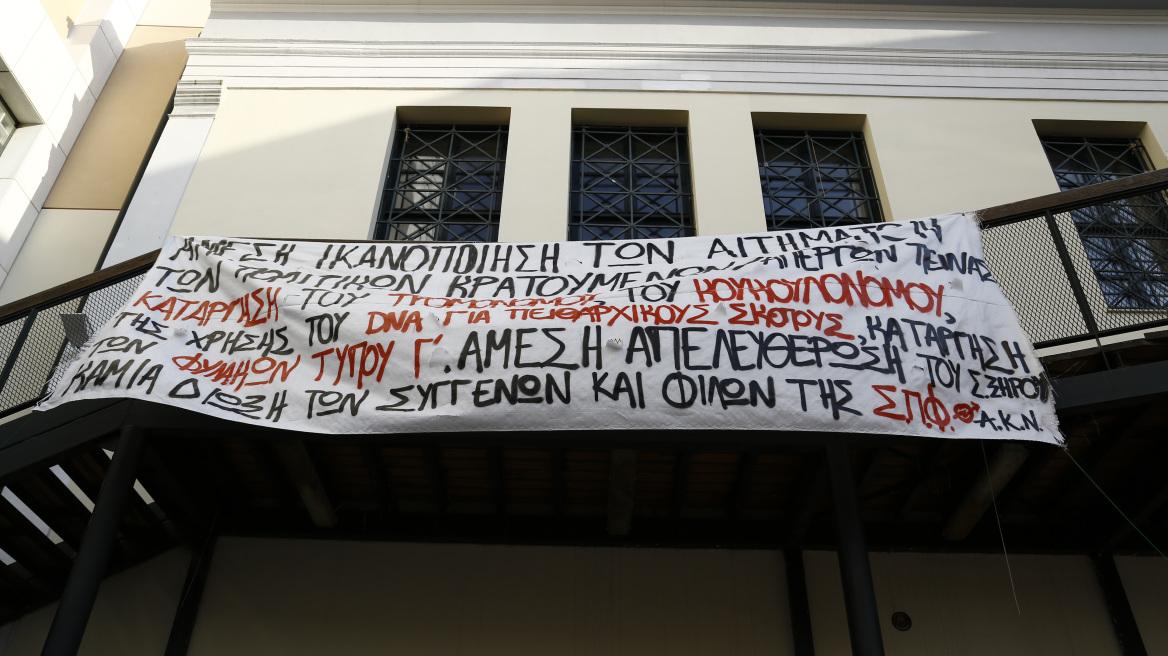 ΑΜΕΣΗ ΙΚΑΝΟΠΟΙΗΣΗ ΤΩΝ ΑΙΤΗΜΑΤΩΝ
ΤΩΝ ΠΟΛΙΤΙΚΩΝ ΚΡΑΤΟΥΜΕΝΩΝ ΑΠΕΡΓΩΝ ΠΕΙΝΑΣ
ΚΑΤΑΡΓΗΣΗ ΤΟΥ ΤΡΟΜΟΝΟΜΟΥ, ΤΟΥ ΚΟΥΚΟΥΛΟΝΟΜΟΥ,
ΤΗΣ ΧΡΗΣΗΣ ΤΟΥ DNA ΓΙΑ ΠΕΙΘΑΡΧΙΚΟΥΣ ΣΚΟΠΟΥΣ, ΚΑΤΑΡΓΗΣΗ
ΤΩΝ ΦΥΛΑΚΩΝ ΤΥΠΟΥ Γ'. ΑΜΕΣΗ ΑΠΕΛΕΥΘΕΡΩΣΗ ΤΟΥ Σ.ΞΗΡΟΥ
ΚΑΜΙΑ ΔΙΩΞΗ ΤΩΝ ΣΥΓΓΕΝΩΝ ΚΑΙ ΦΙΛΩΝ ΤΗΣ Σ.Π.Φ. Α.Κ.Ν.